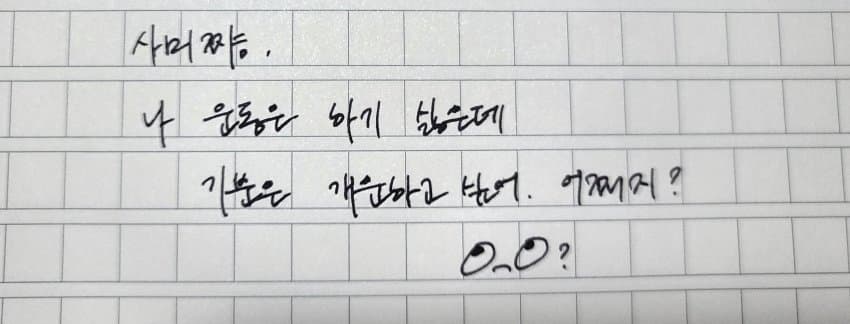 사머쨔응.
나 운동은 하기 싫은데
기분은 개운하고 싶어. 어쩌지?
ㅇ_ㅇ?